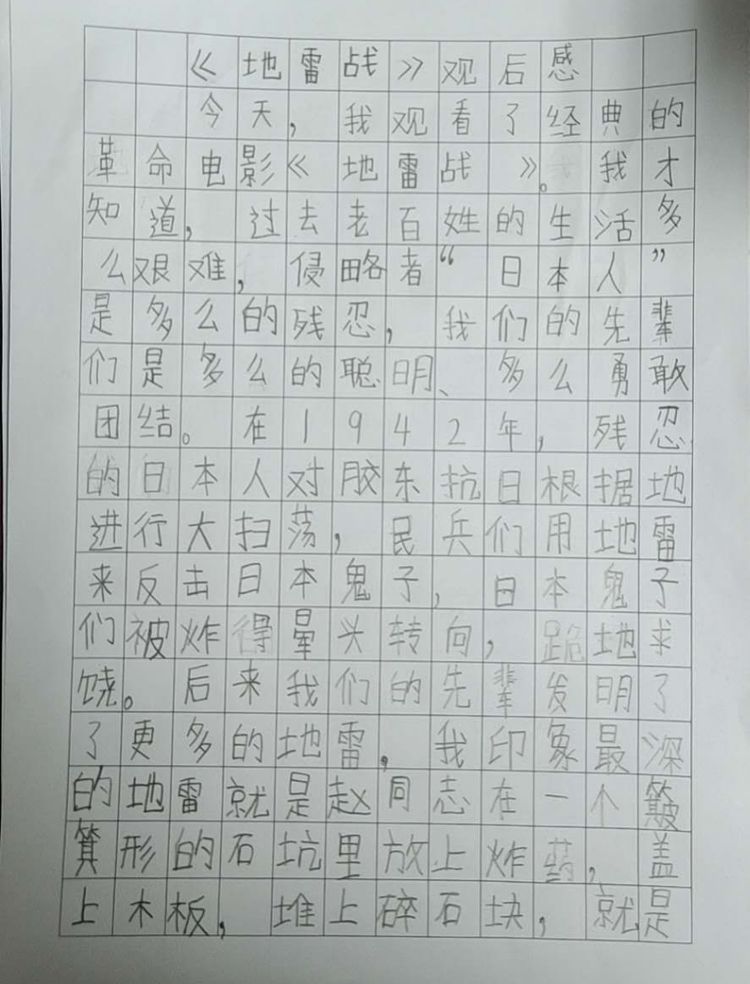 《地雷战》观后感
今天，我观看了经典的
革命电影《地雷战》。我才
知道，过去老百姓的生活多
么艰难，侵略者“日本人”
是多么的残忍，我们的先辈
们是多么的聪明、多么勇敢
团结。在1942年，残忍
的日本人对胶东抗日根据地
进行大扫荡，民兵们用地雷
来反击日本鬼子，日本鬼子
们被炸得晕头转向，跪地求
饶。后来我们的先辈发明了
了更多的地雷，我印象最深
的地雷就是赵同志在一个簸
箕形的石坑里放上炸药，盖
上木板，堆上碎石块，就是